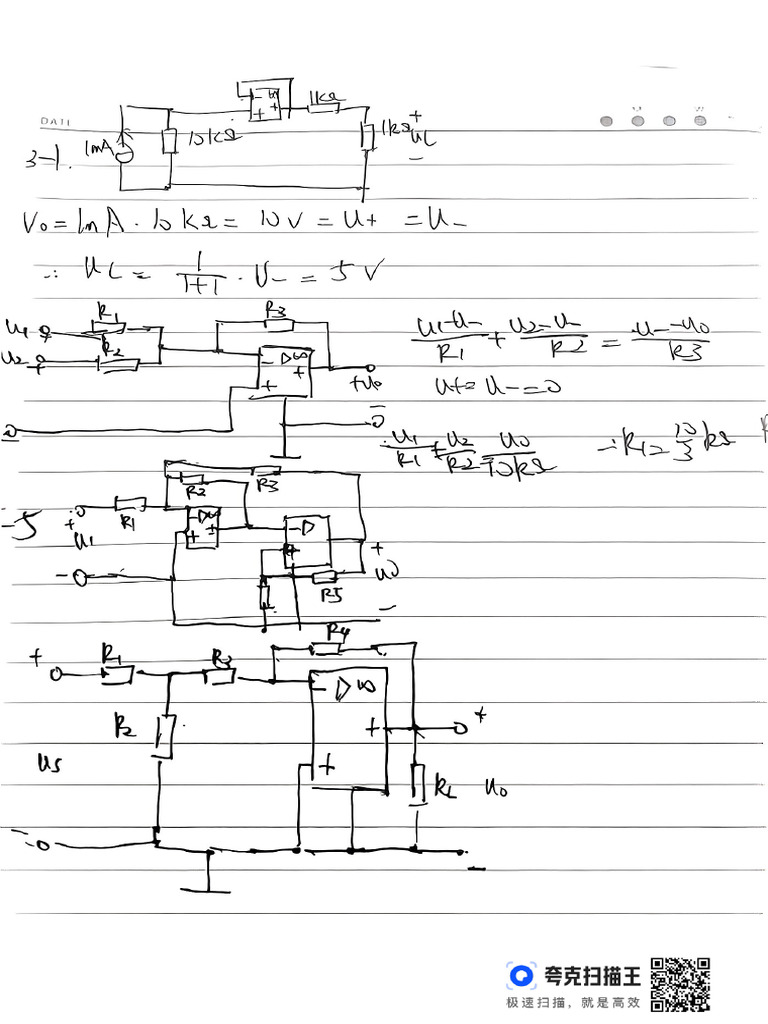 DATE
3-1.
1mA
10kΩ
- ∞
+ +
1kΩ
1kΩ
+
UL
-
V₀ = 1mA · 10kΩ = 10V = U+ = U-
∴ UL = 1/(1+1) · U- = 5V
U1
R1
R3
U2
R2
- ▷∞
+
+
+U0
-
(U1-U-)/R1 + (U2-U-)/R2 = (U--U0)/R3
U+ = U- = 0
∴ U1/R1 + U2/R2 = U0/10kΩ ∴ R1 = 10/3 kΩ
-5
+
U1
-
R1
R2
R3
- ▷∞
+ +
- ▷
+
R5
+
U0
-
+
R1
R3
R4
R2
- ▷∞
+
+
+
Us
RL
U0
-
-
夸克扫描王
极速扫描，就是高效